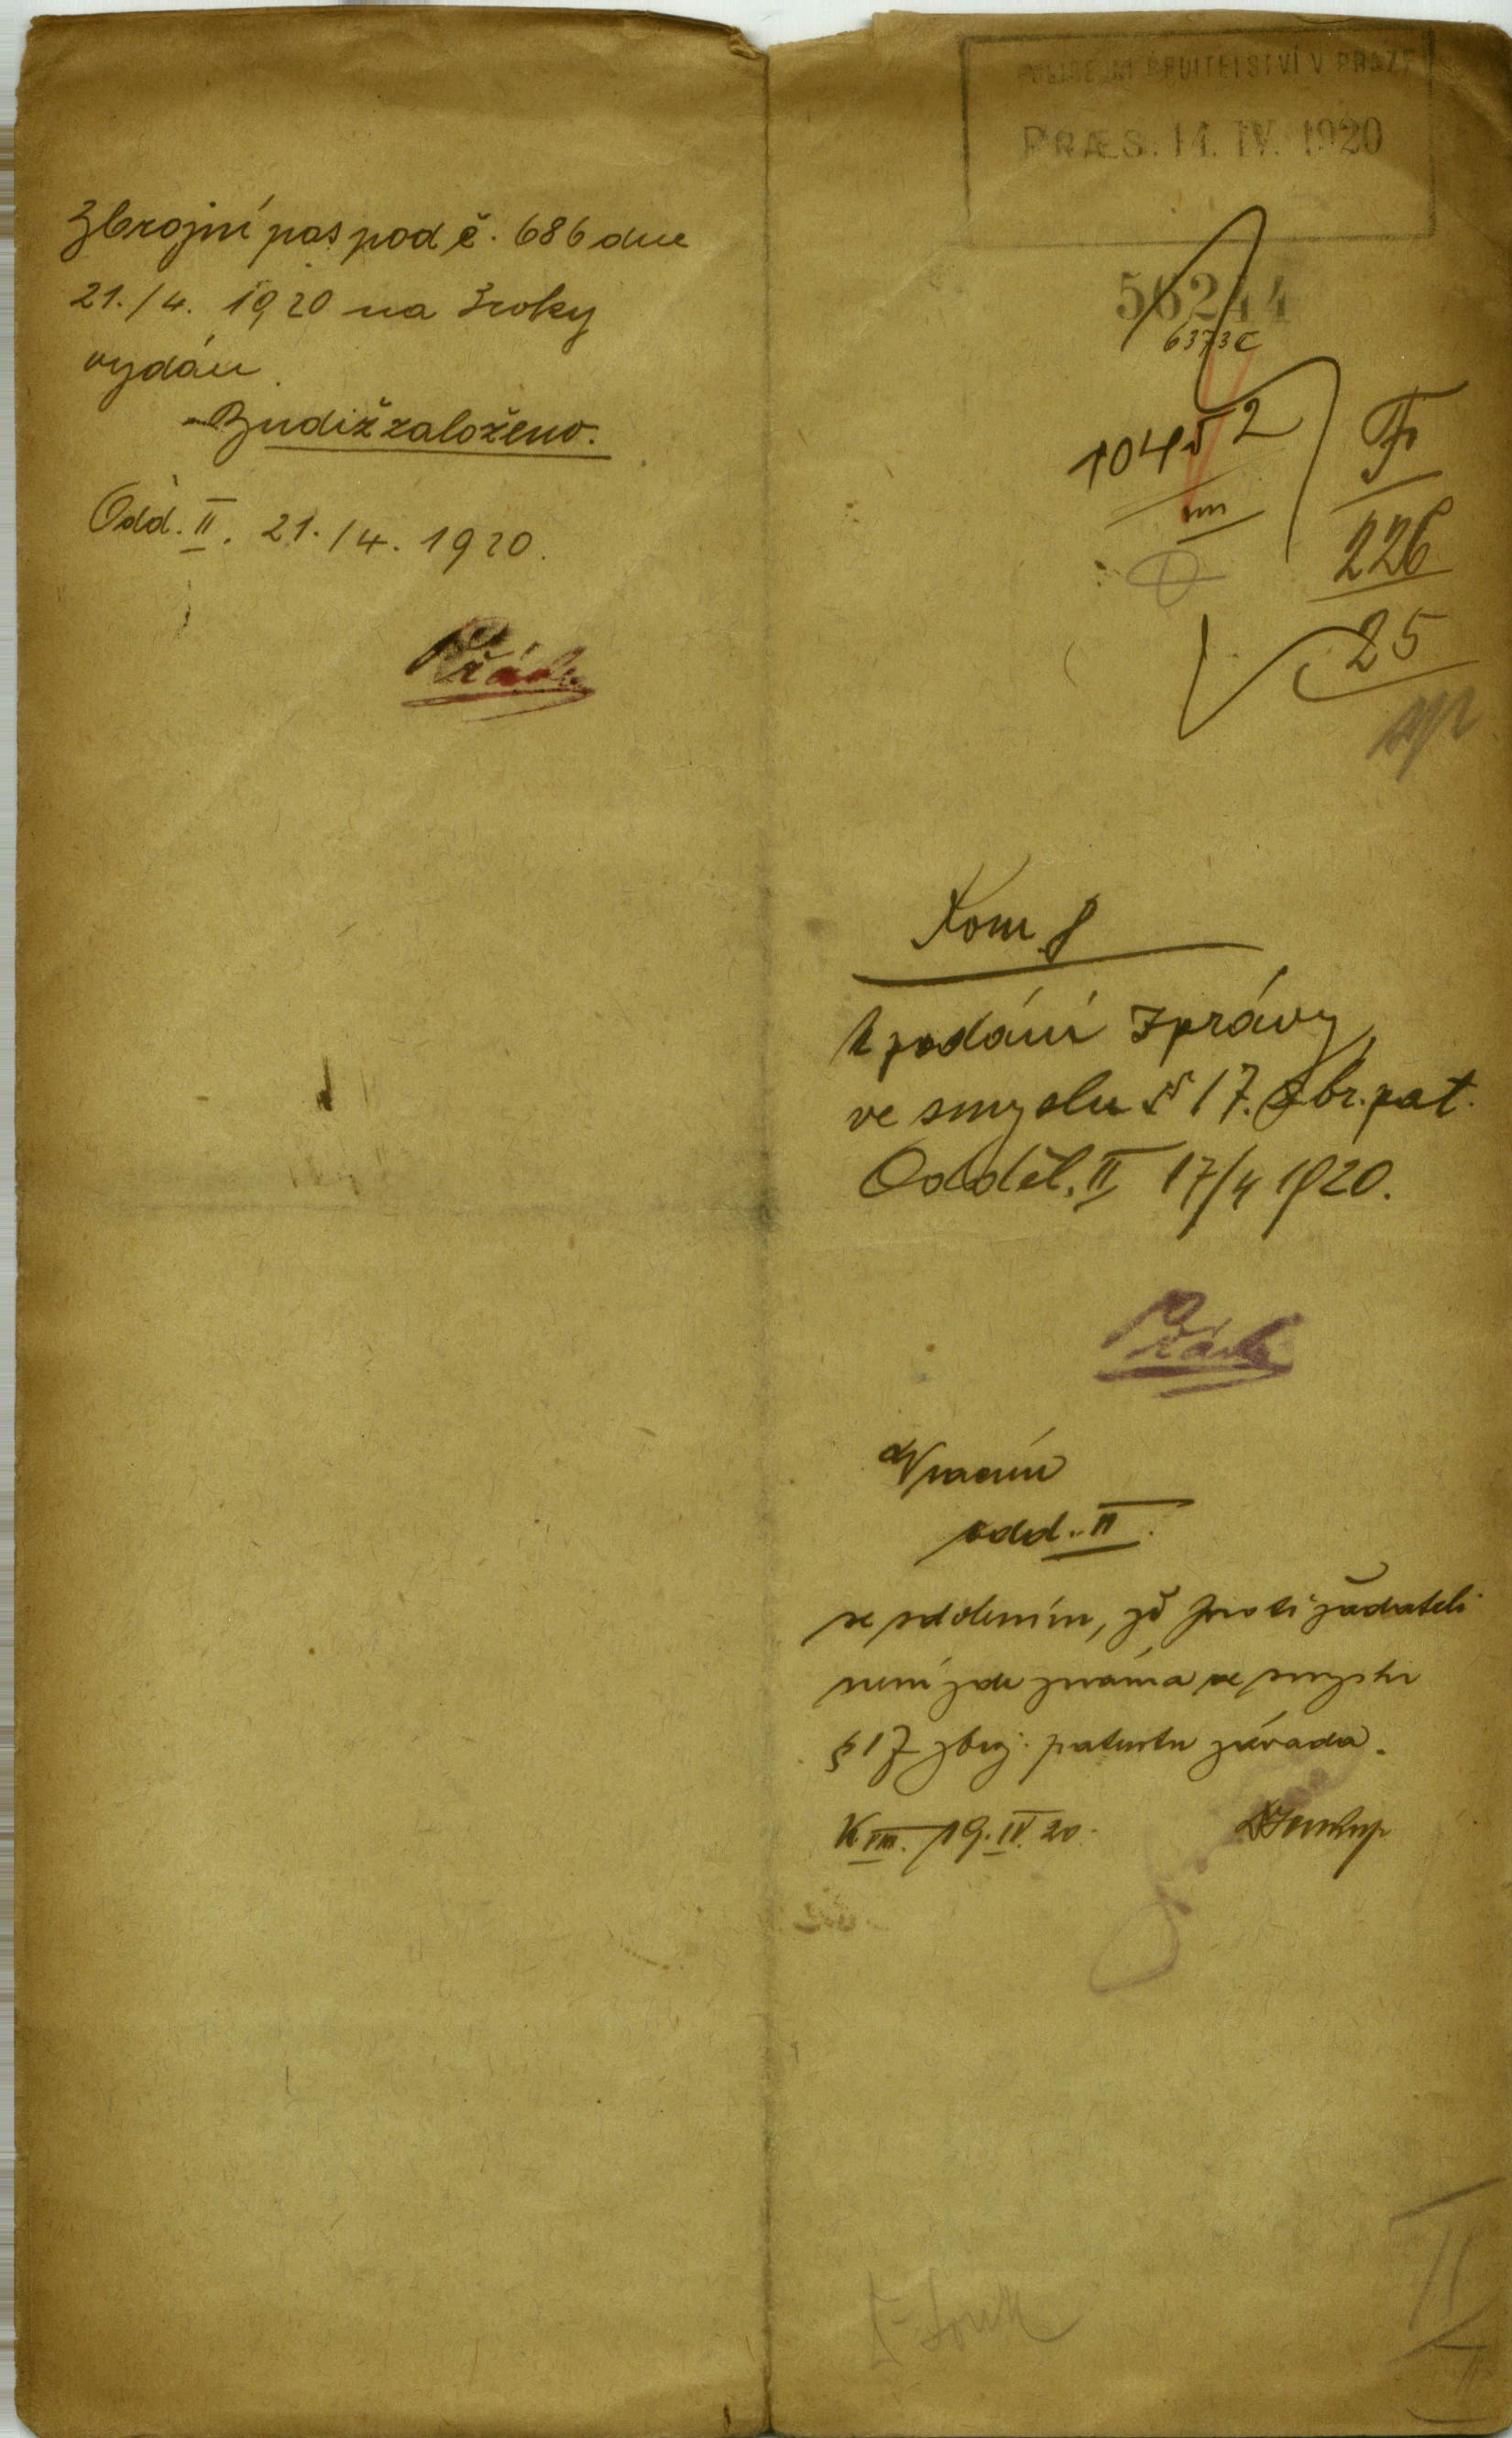 Zbrojní pas pod č. 686 dne
21./4. 1920 na 3 roky
vydán.
Budiž založeno.
Odd. II. 21./4. 1920.
POLICEJNÍ ŘEDITELSTVÍ V PRAZE
PRÆS. 14. IV. 1920
56244
10452
F
226
25
Kom 8
k podání zprávy
ve smyslu § 17. zbr. pat.
Odděl. II 17/4 1920.
Vracím
odd. II.
se sdělením, že proti žadateli
není zde známa ve smyslu
§ 17 zbroj. patentu závada.
K VIII. 19. IV. 20.